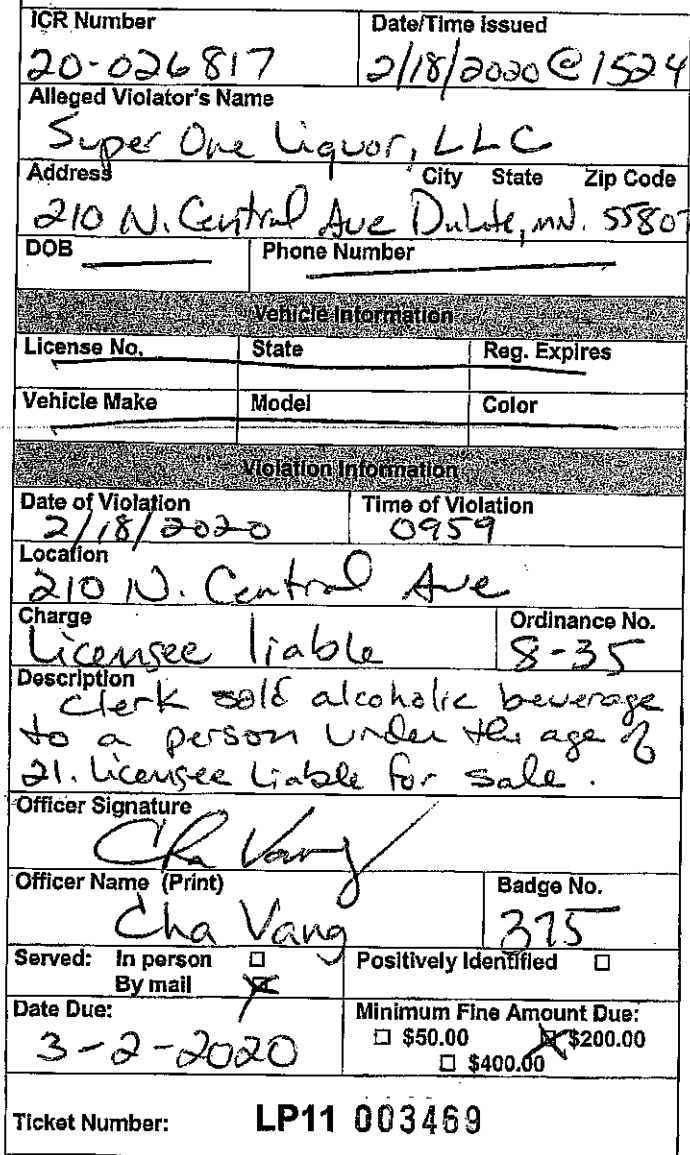 ICR Number Date/Time Issued
20-026817 2/18/2020 @ 1524
Alleged Violator's Name
Super One Liquor, LLC
Address City State Zip Code
210 N. Central Ave Dulute, MN. 55807
DOB Phone Number
Vehicle Information
License No. State Reg. Expires
Vehicle Make Model Color
Violation Information
Date of Violation Time of Violation
2/18/2020 0959
Location
210 N. Central Ave
Charge Ordinance No.
Licensee liable 8-35
Description
Clerk sold alcoholic beverage
to a person under the age of
21. Licensee Liable for sale.
Officer Signature
Cha Vang
Officer Name (Print) Badge No.
Cha Vang 375
Served: In person ☐ Positively Identified ☐
By mail ☒
Date Due: Minimum Fine Amount Due:
3-2-2020 ☐ $50.00 ☒ $200.00
☐ $400.00
Ticket Number: LP11 003469